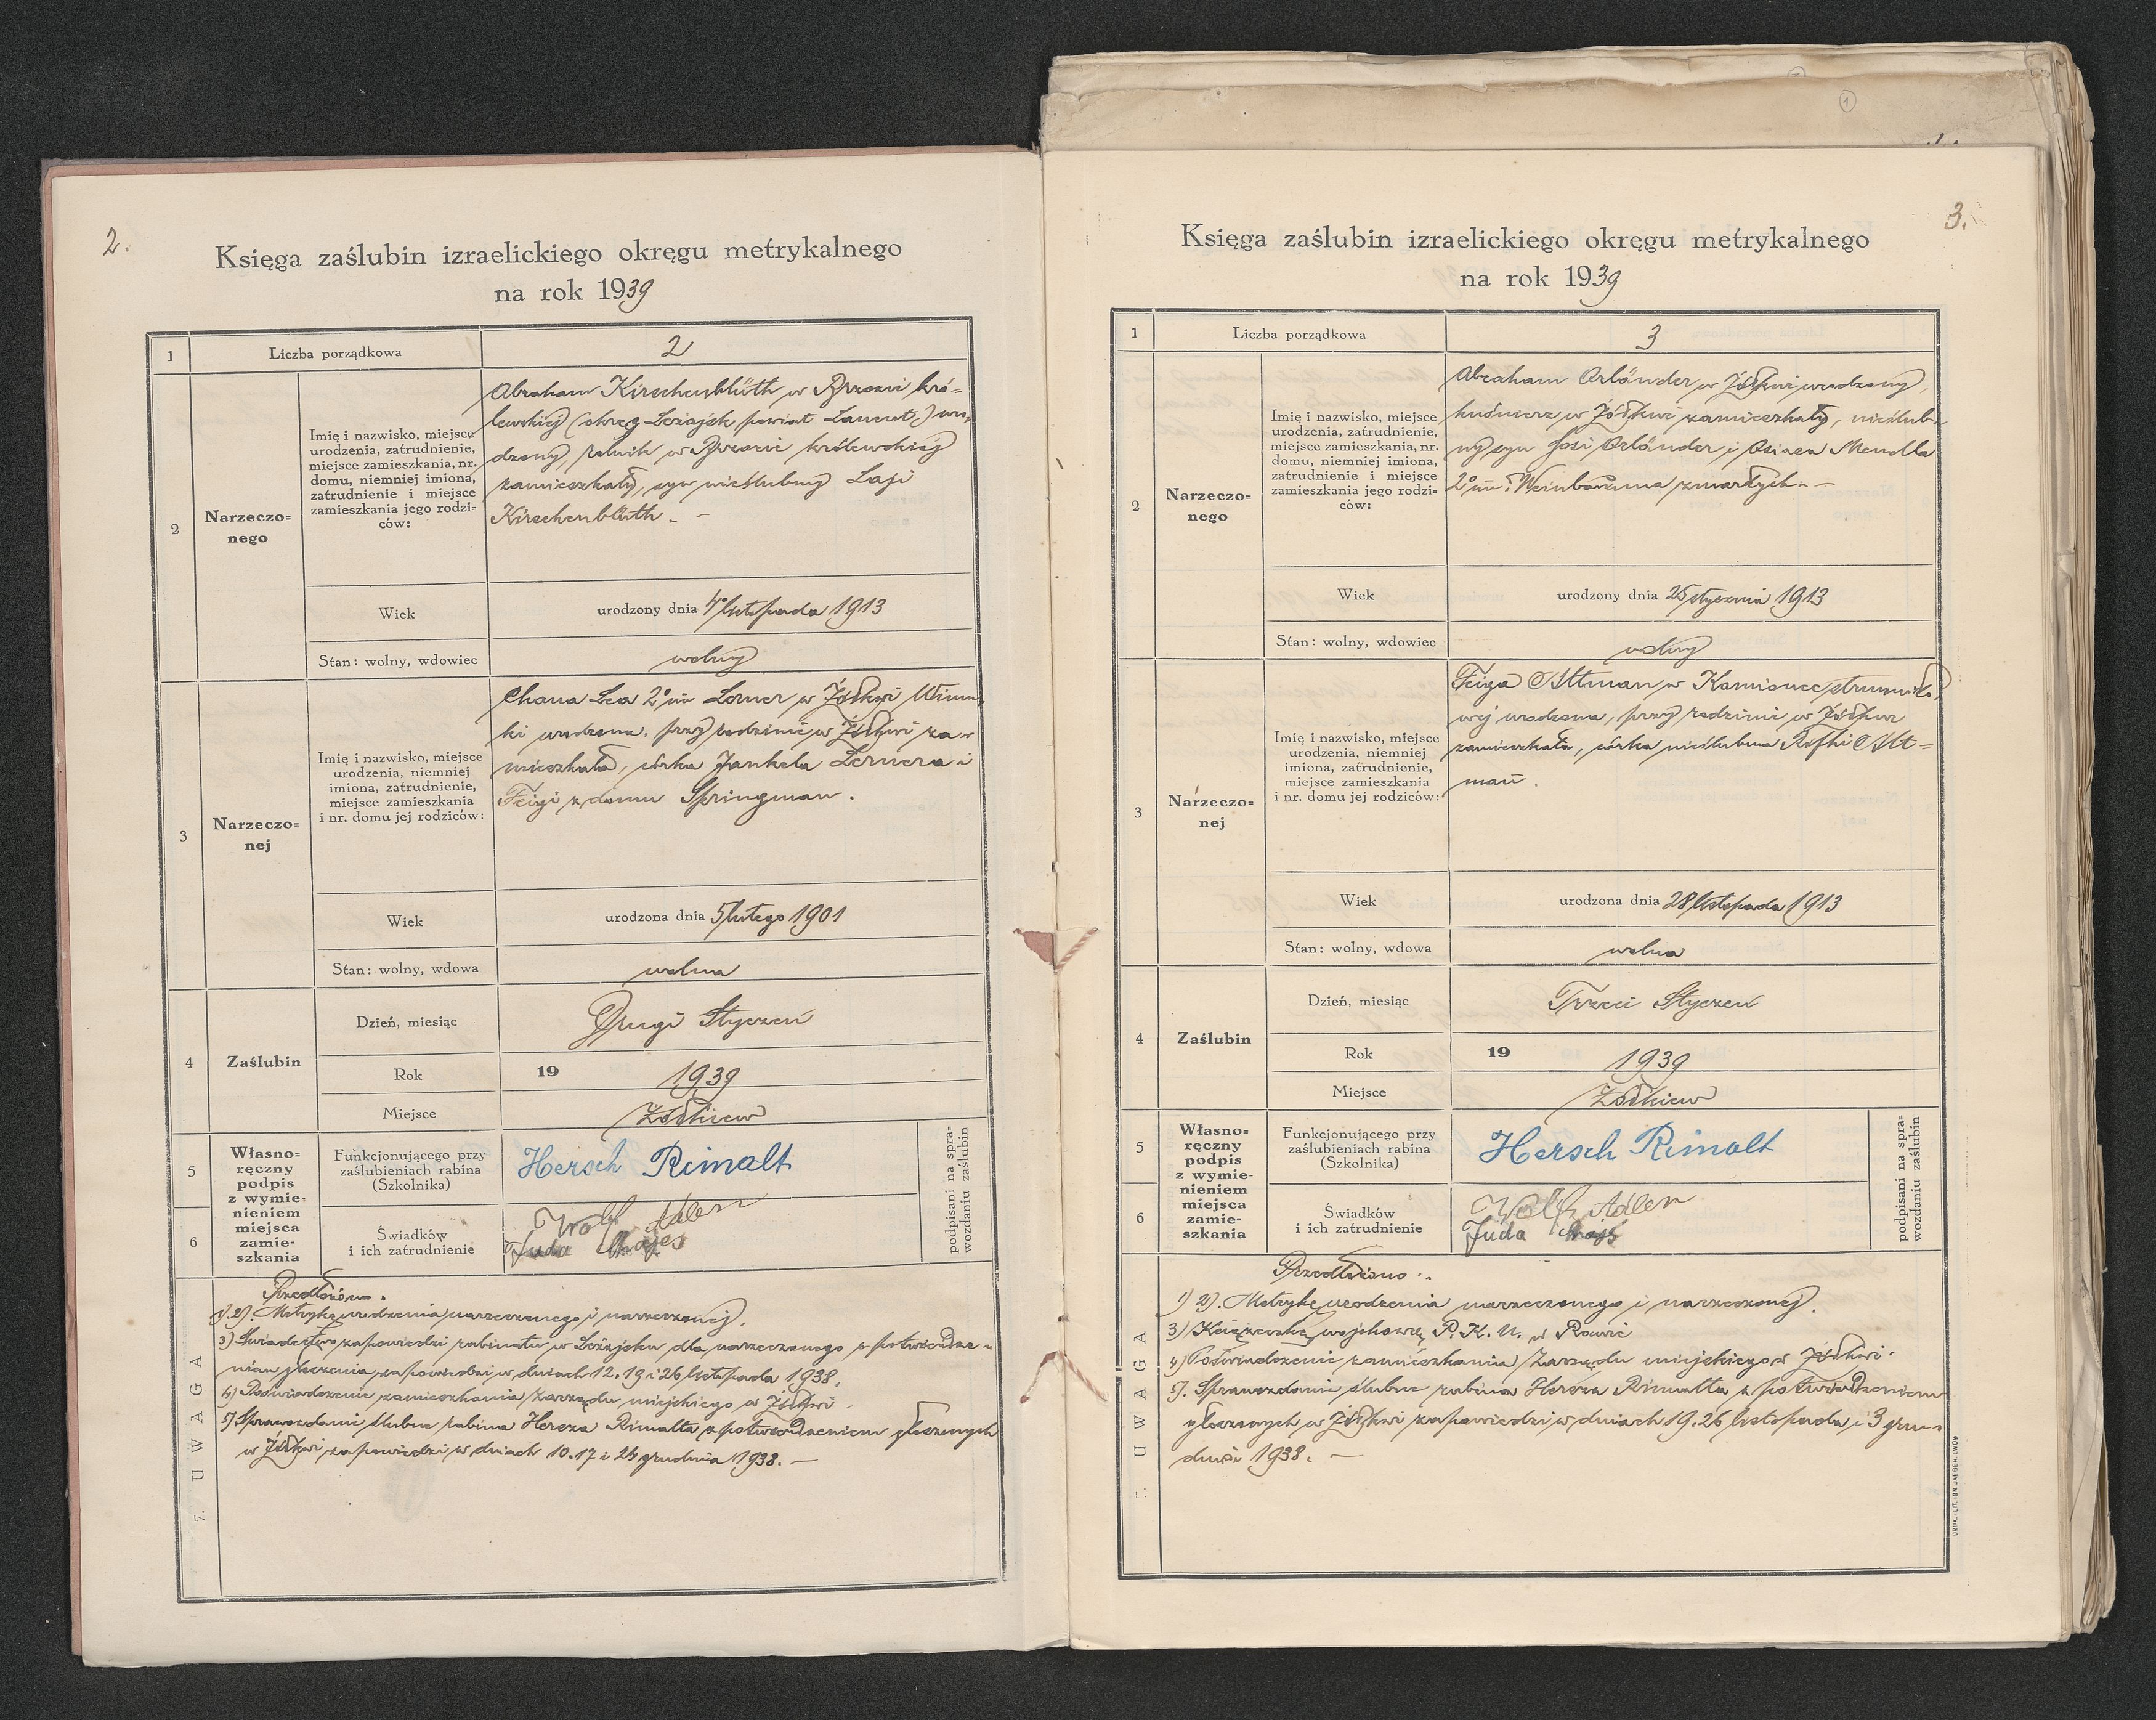 2.
Księga zaślubin izraelickiego okręgu metrykalnego
na rok 1939
1
Liczba porządkowa
2
2
Narzeczo=
nego
Imię i nazwisko, miejsce
urodzenia, zatrudnienie,
miejsce zamieszkania, nr.
domu, niemniej imiona,
zatrudnienie i miejsce
zamieszkania jego rodzi=
ców:
Abraham Kirschenblüth w Brzozie kró=
lewskiej (okręg Leżajsk powiat Łancut) uro
dzony, rolnik w Brzozie królewskiej
zamieszkały, syn nieślubny Laji
Kirschenblüth. -
Wiek
urodzony dnia 4 listopada 1913
Stan: wolny, wdowiec
wolny
3
Narzeczo=
nej
Imię i nazwisko, miejsce
urodzenia, niemniej
imiona, zatrudnienie,
miejsce zamieszkania
i nr. domu jej rodziców:
Chana Lea 2° im Lerner w Żółkwi Winni
ki urodzona, przy rodzinie w Żółkwi za=
mieszkała, córka Jankela Lernera i
Feigi z domu Springman.
Wiek
urodzona dnia 5 lutego 1901
Stan: wolny, wdowa
wolna
4
Zaślubin
Dzień, miesiąc
Drugi Styczeń
Rok
19
1939
Miejsce
Żółkiew
5
6
Własno=
ręczny
podpis
z wymie=
nieniem
miejsca
zamie=
szkania
Funkcjonującego przy
zaślubieniach rabina
(Szkolnika)
Hersch Rimalt
Świadków
i ich zatrudnienie
Wolf Adler
Juda
podpisani na spra=
wozdaniu zaślubin
7. UWAGA
Przedłożono.
1) 2). Metrykę urodzenia narzeczonego i narzeczonej.
3) Świadectwo zapowiedzi rabinatu w Leżajsku dla narzeczonego z potwierdze=
niem głoszenia zapowiedzi w dniach 12. 19 i 26 listopada 1938.
4) Poświadczenie zamieszkania Zarządu miejskiego w Żółkwi.
5) Sprawozdanie ślubne rabina Hersza Rimalta z potwierdzeniem głoszonych
w Żółkwi zapowiedzi w dniach 10. 17 i 24 grudnia 1938. —
3.
Księga zaślubin izraelickiego okręgu metrykalnego
na rok 1939
1
Liczba porządkowa
3
2
Narzeczo=
nego
Imię i nazwisko, miejsce
urodzenia, zatrudnienie,
miejsce zamieszkania, nr.
domu, niemniej imiona,
zatrudnienie i miejsce
zamieszkania jego rodzi=
ców:
Abraham Orländer w Żółkwi urodzony,
kuśnierz w Żółkwi zamieszkały, nieślub=
ny syn Josi Orländer i Osiasa Mendla
2° im. Weinbauma zmarłych. —
Wiek
urodzony dnia 25 stycznia 1913
Stan: wolny, wdowiec
wolny
3
Narzeczo=
nej
Imię i nazwisko, miejsce
urodzenia, niemniej
imiona, zatrudnienie,
miejsce zamieszkania
i nr. domu jej rodziców:
Feiga Altman w Kamionce strumiło=
wej urodzona, przy rodzinie w Żółkwi
zamieszkała, córka nieślubna Rifki Alt=
man.
Wiek
urodzona dnia 28 listopada 1913
Stan: wolny, wdowa
wolna
4
Zaślubin
Dzień, miesiąc
Trzeci Styczeń
Rok
19
1939
Miejsce
Żółkiew
5
6
Własno=
ręczny
podpis
z wymie=
nieniem
miejsca
zamie=
szkania
Funkcjonującego przy
zaślubieniach rabina
(Szkolnika)
Hersch Rimalt
Świadków
i ich zatrudnienie
Wolf Adler
Juda
podpisani na spra=
wozdaniu zaślubin
7. UWAGA
Przedłożono.
1) 2). Metrykę urodzenia narzeczonego i narzeczonej.
3) Książeczkę wojskową P. K. U. w Rawie
4) Poświadczenie zamieszkania Zarządu miejskiego w Żółkwi.
5). Sprawozdanie ślubne rabina Hersza Rimalta z potwierdzeniem
głoszonych w Żółkwi zapowiedzi w dniach 19. 26 listopada i 3 gru=
dnia 1938. —
DRUK. i LIT. HEN. JAEGER. LWÓW